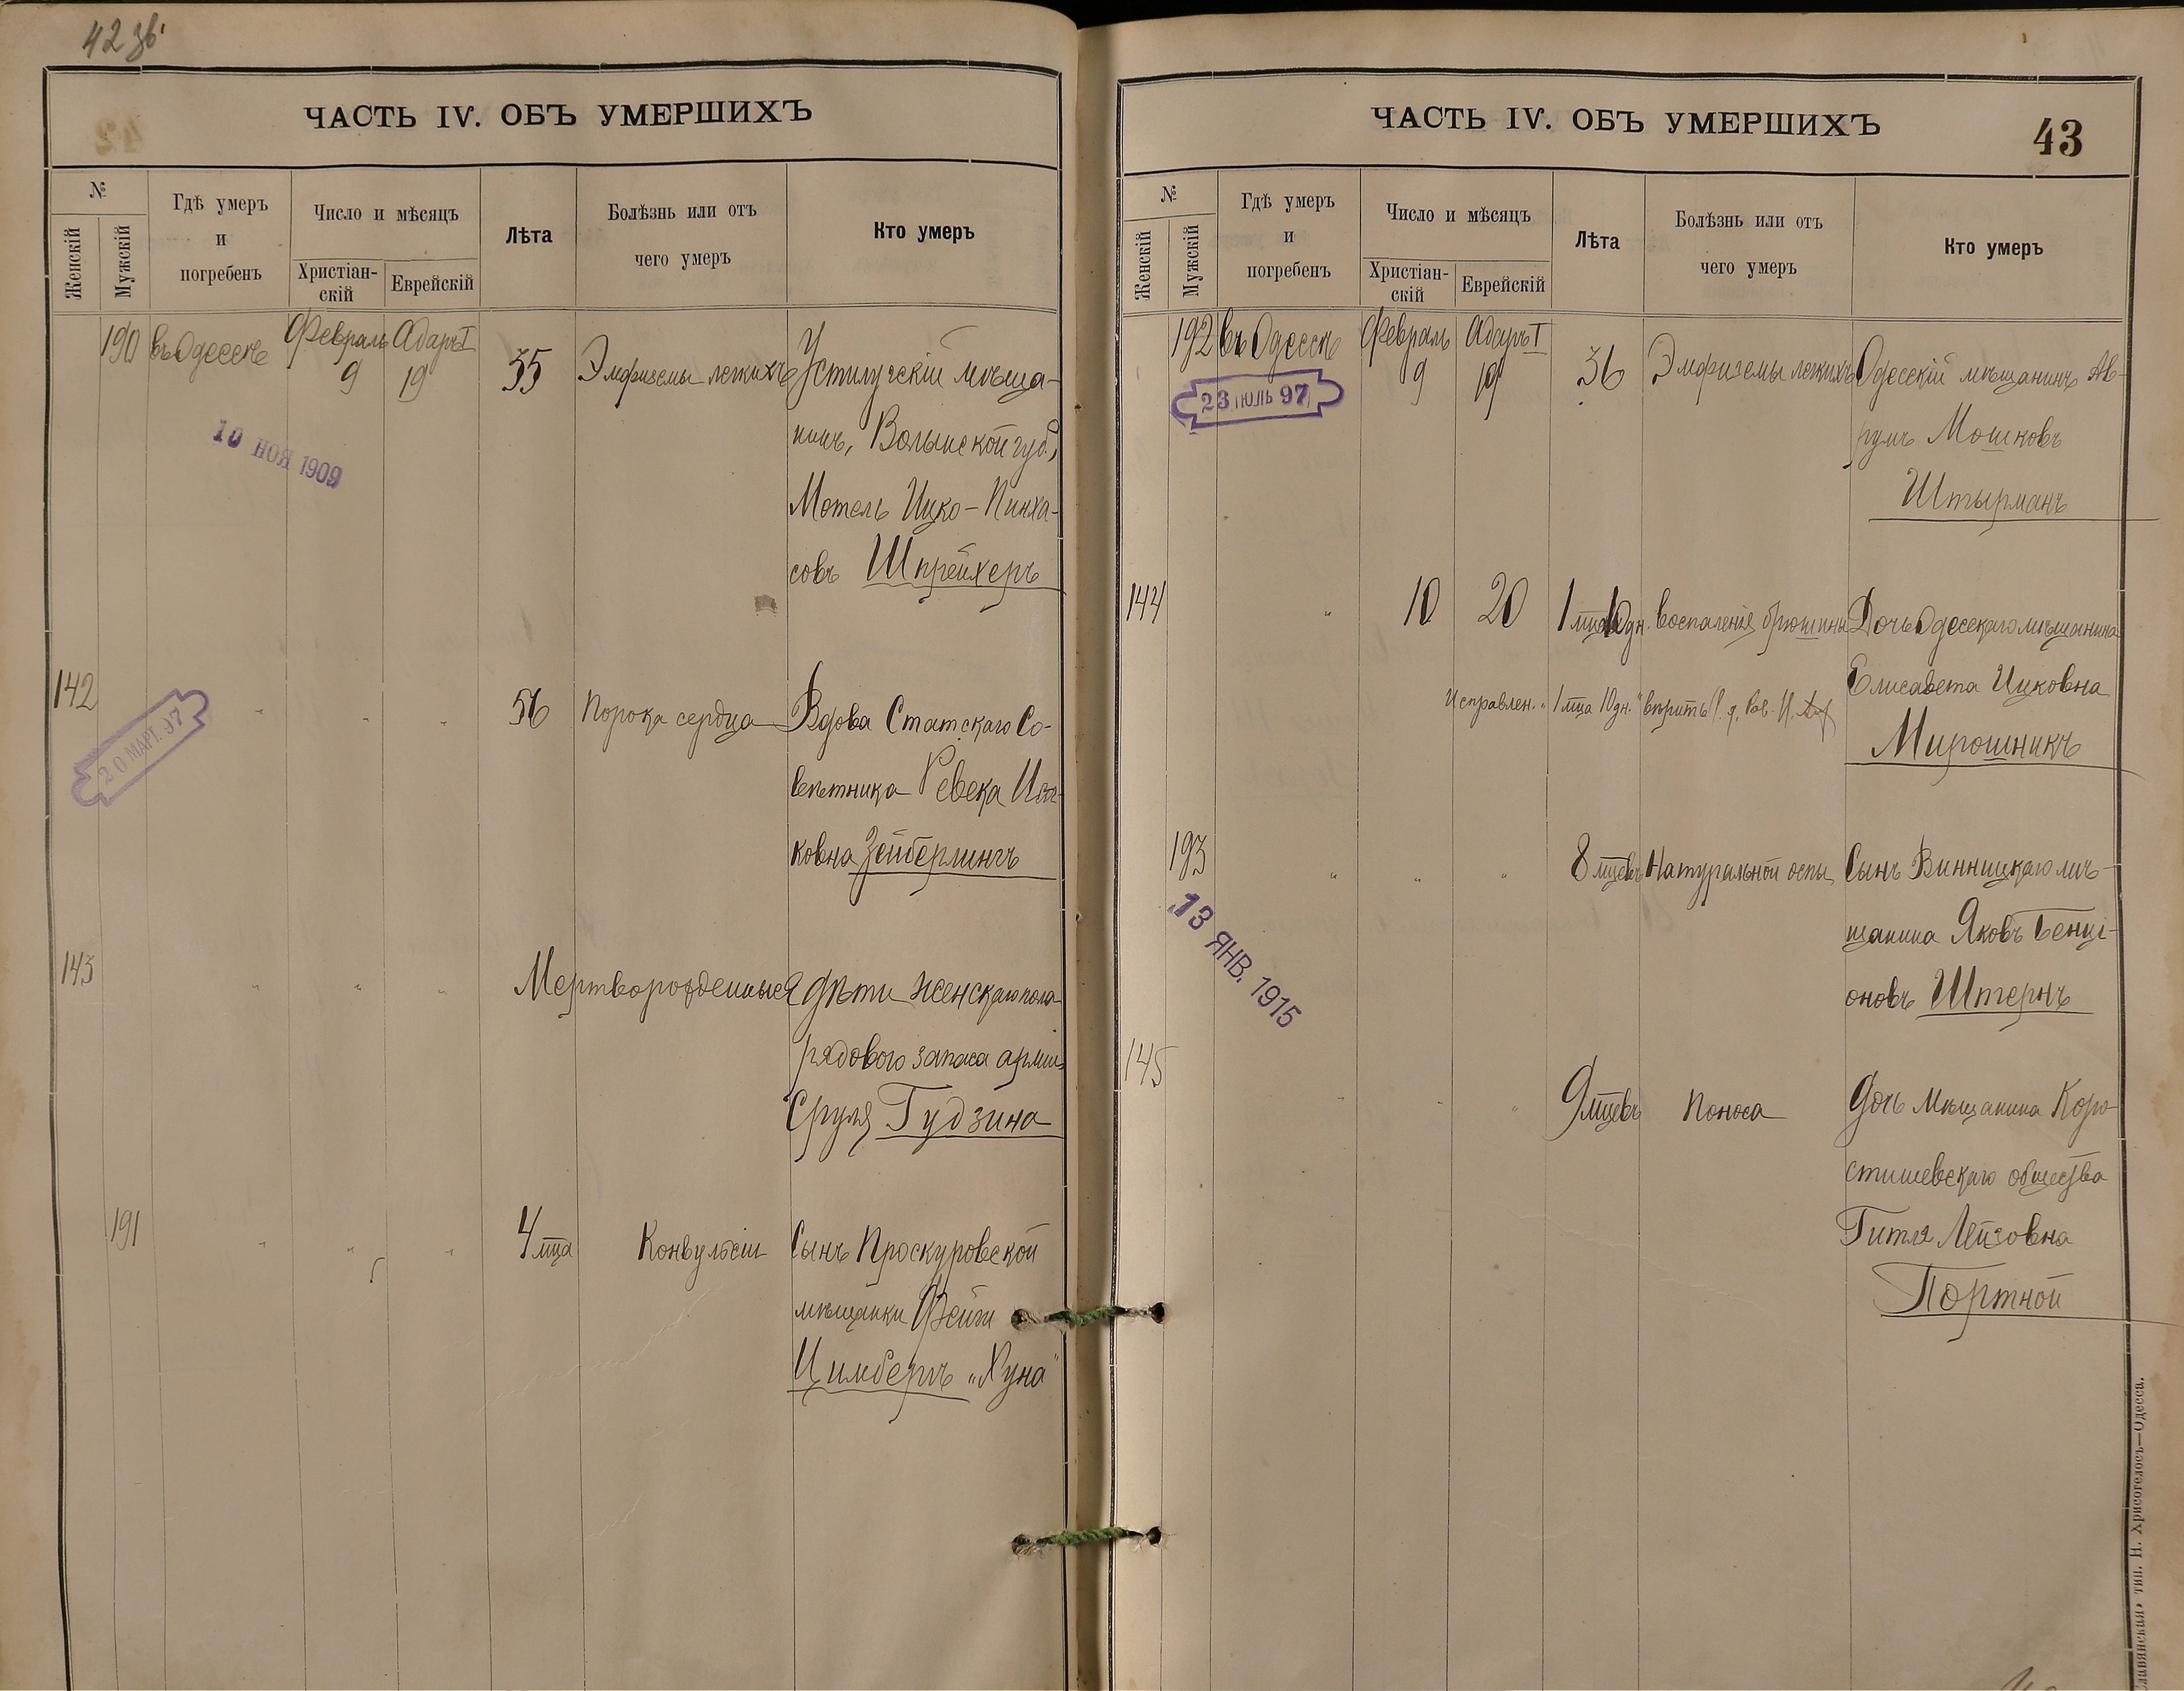 42 зв.
ЧАСТЬ IV. ОБЪ УМЕРШИХЪ
№
Женскій
Мужскій
Гдѣ умеръ
и
погребенъ
Число и мѣсяцъ
Христіан-
скій
Еврейскій
Лѣта
Болѣзнь или отъ
чего умеръ
Кто умеръ
190 въ Одессѣ Февраль 9 Адаръ I 19 35 Эмфиземы легкихъ Устилугскій мѣща-
нинъ, Волынской губ.,
Мотель Ицко-Пинха-
совъ Шпрейхеръ
10 НОЯ 1909
142 " " " 56 Порока сердца Вдова Статскаго Со-
вѣтника Ревека Иса-
ковна Зейберлингъ
20 МАРТ. 97
143 " " " Мертворожденныя дѣти женскаго пола
рядового запаса арміи
Сруля Гудзина
191 " " " 4 мца Конвульсіи Сынъ Проскуровской
мѣщанки Фейги
Цимберъ "Хуна"
ЧАСТЬ IV. ОБЪ УМЕРШИХЪ
43
№
Женскій
Мужскій
Гдѣ умеръ
и
погребенъ
Число и мѣсяцъ
Христіан-
скій
Еврейскій
Лѣта
Болѣзнь или отъ
чего умеръ
Кто умеръ
192 въ Одессѣ Февраль 9 Адаръ I 19 36 Эмфиземы легкихъ Одесскій мѣщанинъ Ав-
румъ Мошковъ
Штырманъ
23 ІЮЛЬ 97
144 " 10 20 1 мца 10 дн. Воспаленія брюшины Дочь Одесскаго мѣщанина
Елисавета Ицковна
Исправлен. "1 мца 10 дн." вѣрить
Мирошникъ
193 " " " 8 мцевъ Натуральной оспы Сынъ Винницкаго мѣ-
щанина Яковъ Бенці-
оновъ Штернъ
13 ЯНВ. 1915
145 " " " 9 мцевъ Поноса Дочь мѣщанина Коро-
стишевскаго общества
Гитля Лейзовна
Портной
Славянская» тип. Н. Хрисогелосъ—Одесса.